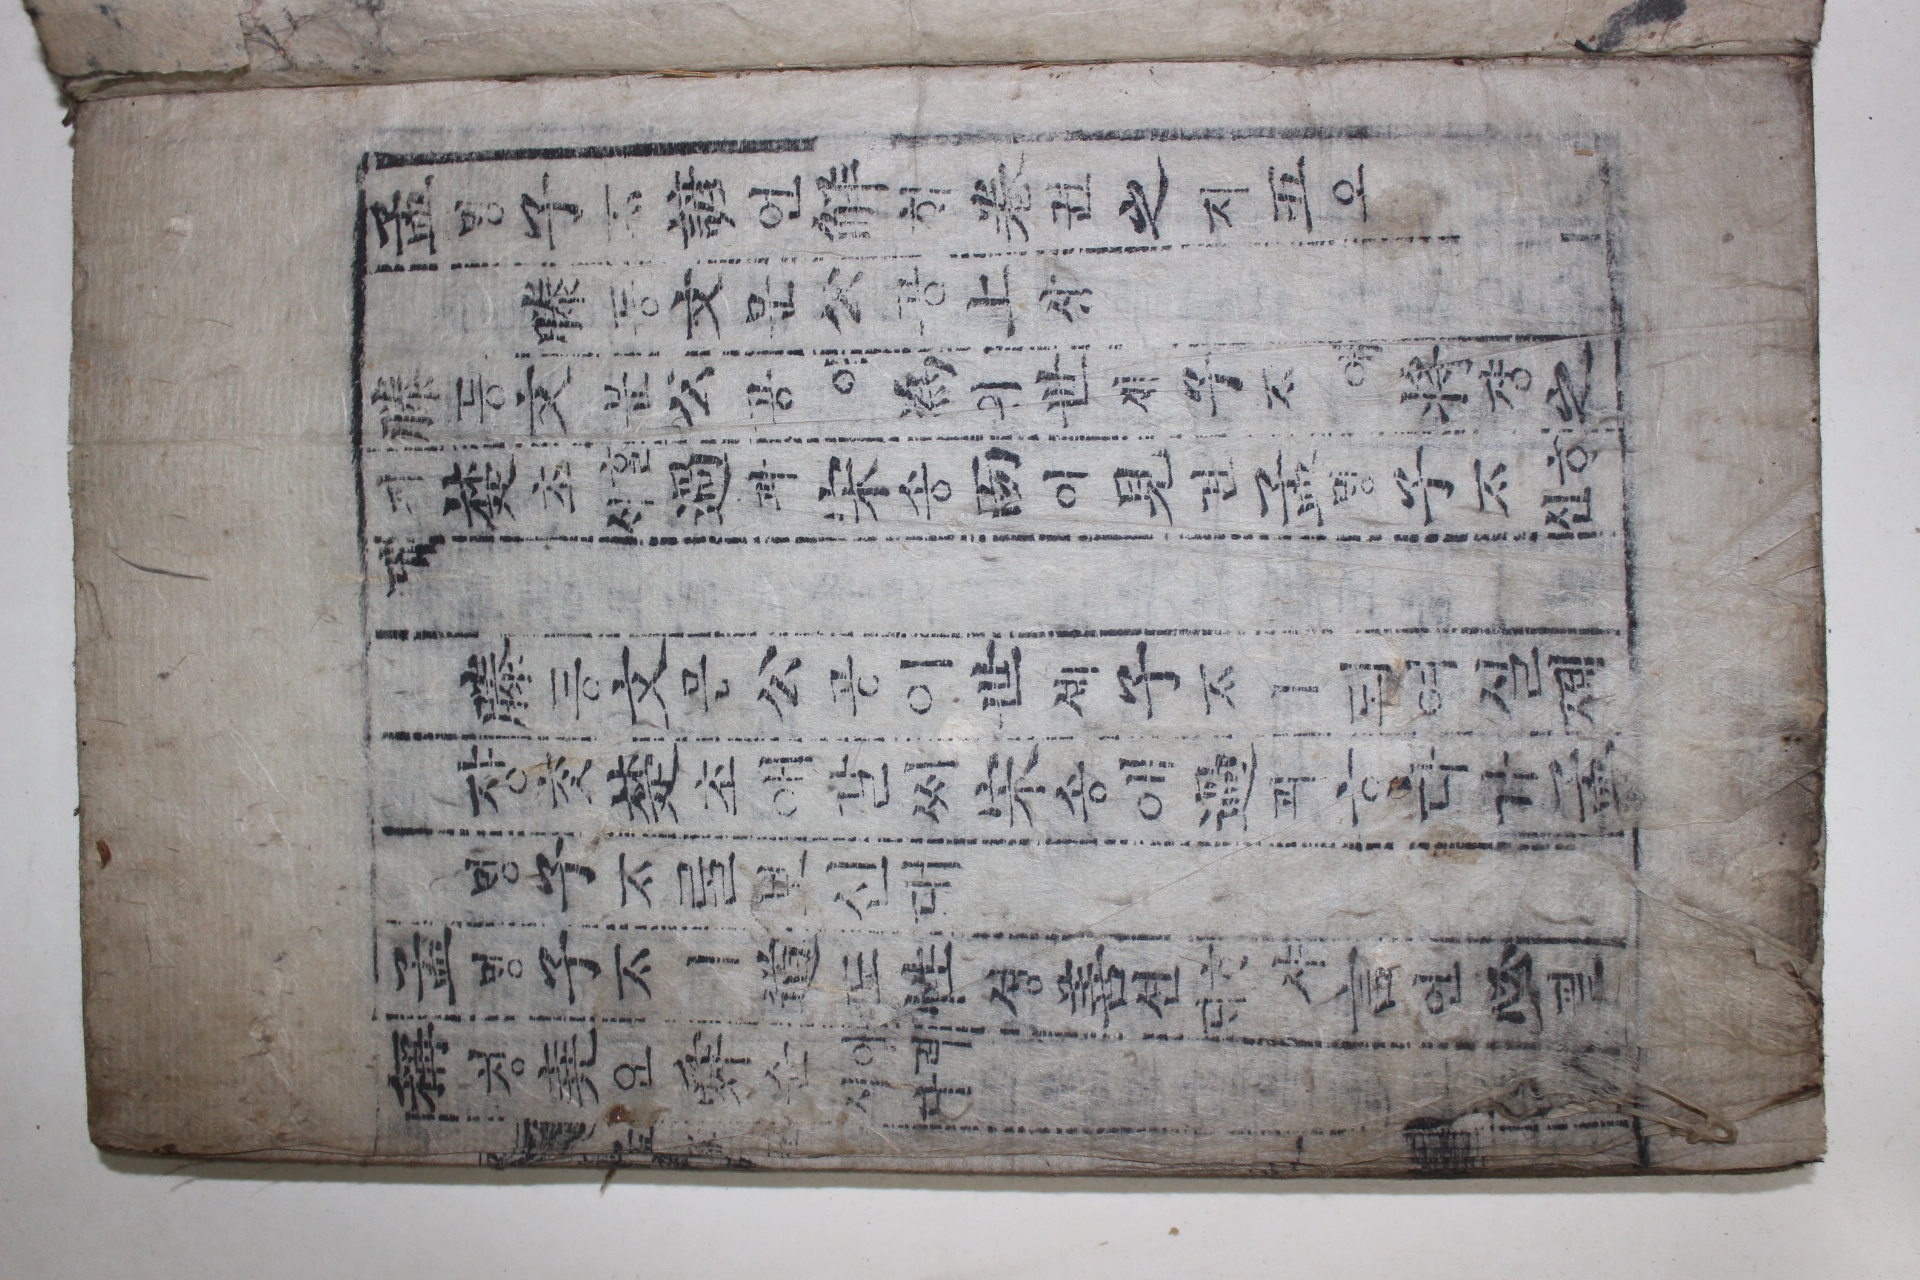 孟ᄆᆡᆼ子ᄌᆞ諺언解ᄒᆡ卷권之지五오
滕등文문公공上샹
滕등文문公공이爲위世셰子ᄌᆞ에將쟝之지
楚초ᄒᆞᆯᄉᆡ過과宋송而이見견孟ᄆᆡᆼ子ᄌᆞᄒᆞ신
대
滕등文문公공이世셰子ᄌᆞㅣ되여실제
쟝ᄎᆞᆺ楚초애갈ᄉᆡ宋송애過과ᄒᆞ다가孟
ᄆᆡᆼ子ᄌᆞᄅᆞᆯ보신대
孟ᄆᆡᆼ子ᄌᆞㅣ道도性셩善션ᄒᆞ샤ᄃᆡ言언必필
稱칭堯요舜슌이러시다